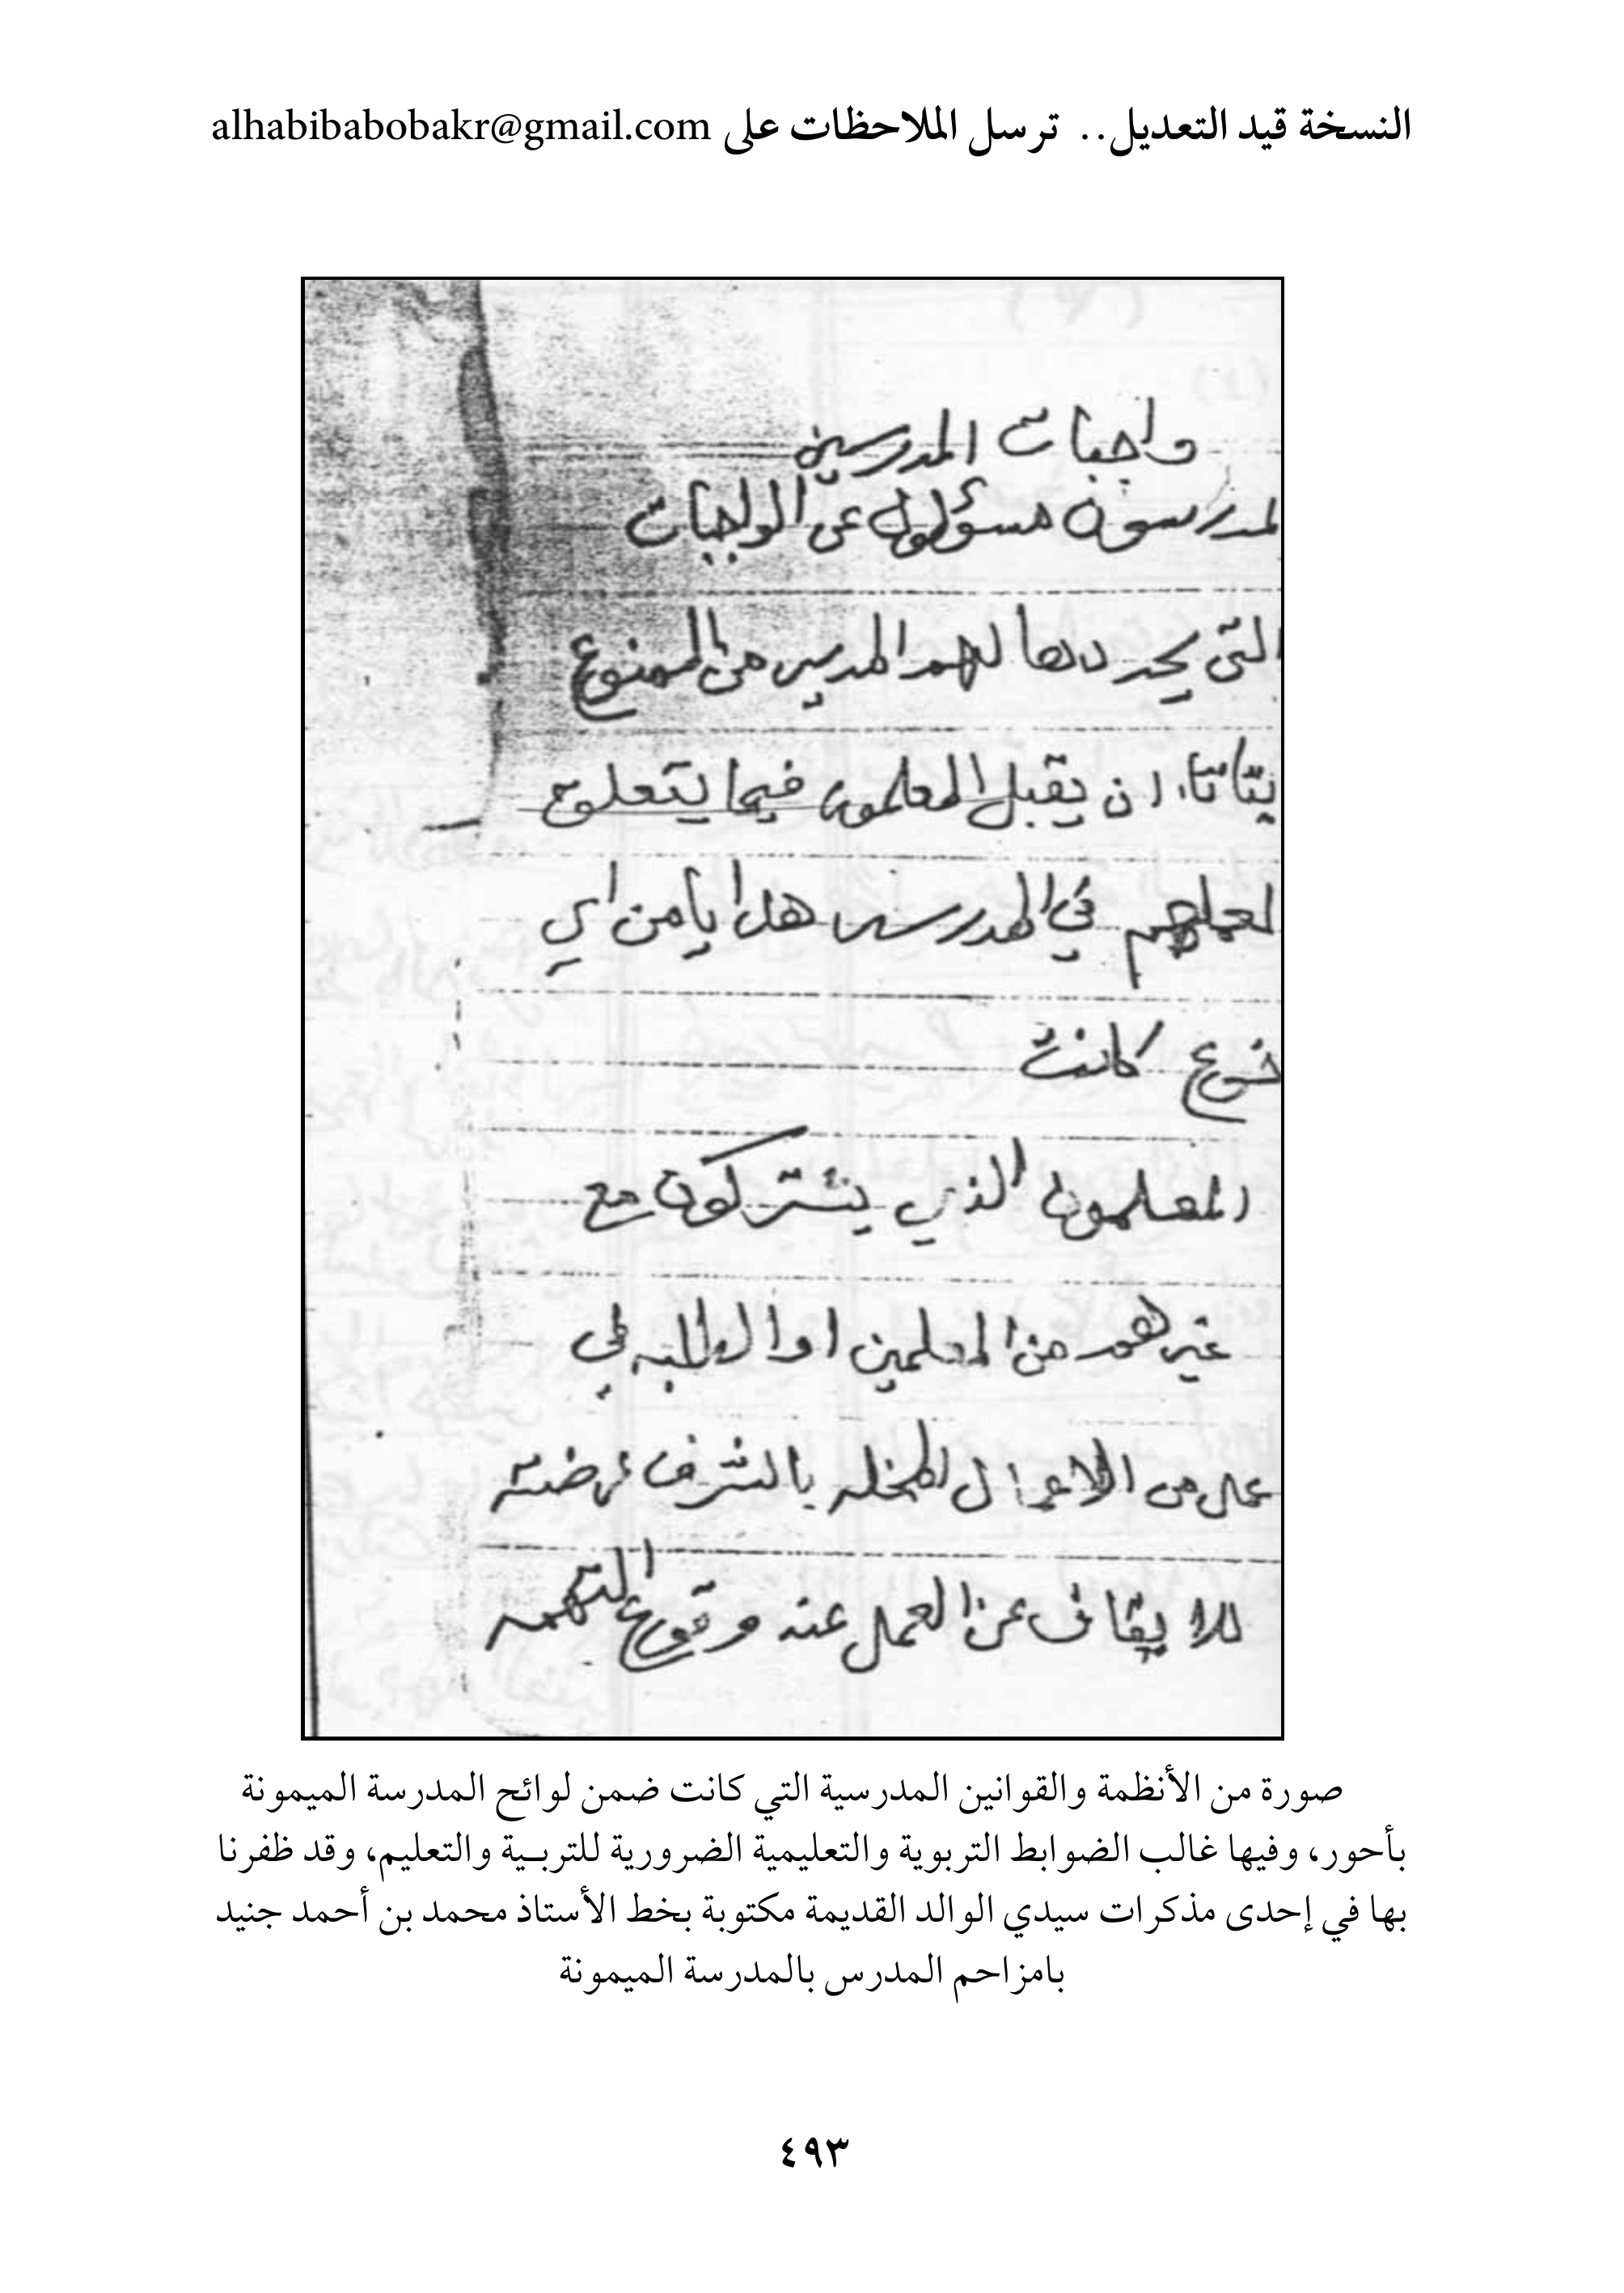 النسخة قيد التعديل.. ترسل الملاحظات على alhabibabobakr@gmail.com
واجبات المدرسين
لمدرسون مسؤلون عن الواجبات
التي يحددها لهم المدير من الممنوع
ان يقبل المعلمون فيما يتعلق
لعملهم في المدرسه هدايا من اي
نوع كانت
المعلمون الذي يشتركون مع
غيرهم من المعلمين او الطلبه في
عمل من الاعمال المخله بالشرف
يقاف عن العمل عند وقوع التهمه
صورة من الأنظمة والقوانين المدرسية التي كانت ضمن لوائح المدرسة الميمونة
بأحور، وفيها غالب الضوابط التربوية والتعليمية الضرورية للتربـية والتعليم، وقد ظفرنا
بها في إحدى مذكرات سيدي الوالد القديمة مكتوبة بخط الأستاذ محمد بن أحمد جنيد
بامزاحم المدرس بالمدرسة الميمونة
٤٩٣